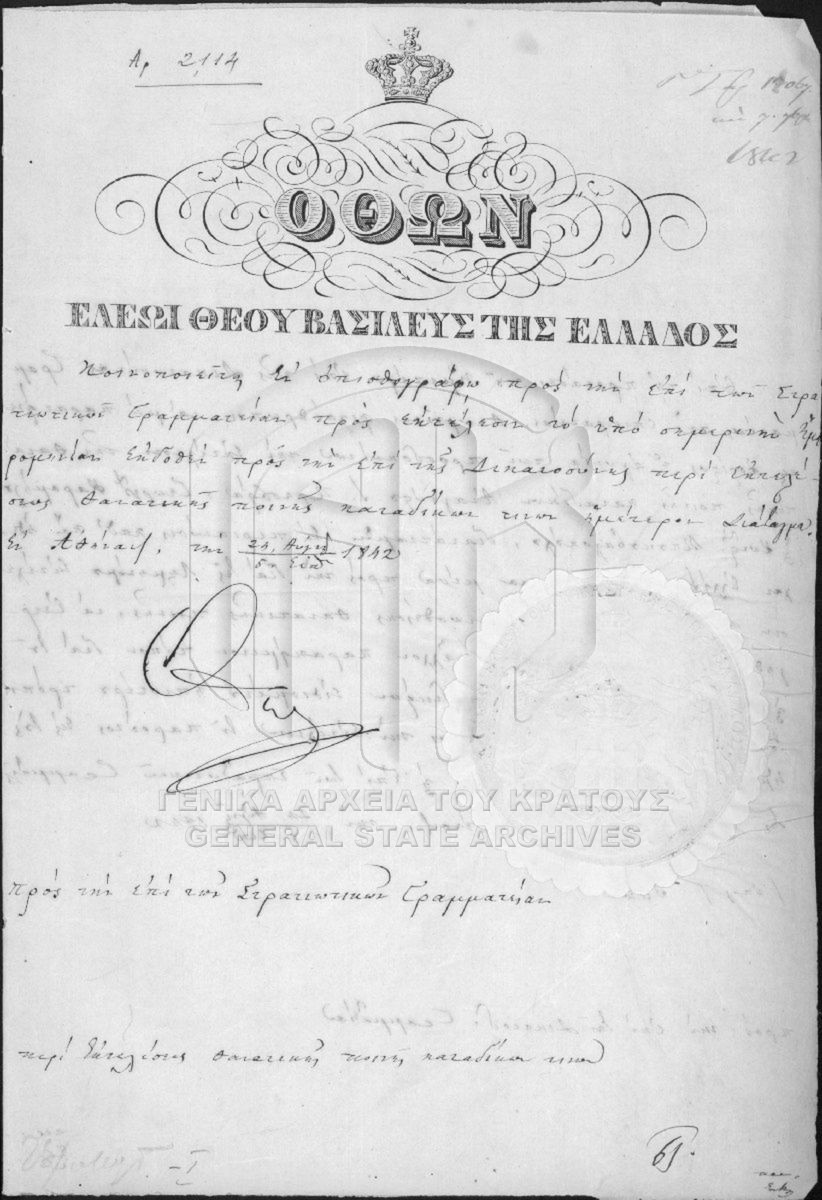 Αρ 2,114
1842
ΟΘΩΝ
ΕΛΕΩΙ ΘΕΟΥ ΒΑΣΙΛΕΥΣ ΤΗΣ ΕΛΛΑΔΟΣ
Κοινοποιεῖται ἐν ὀπισθογράφῳ πρὸς τὴν ἐπὶ τῶν Στρα
τιωτικῶν Γραμματείαν πρὸς ἐκτέλεσιν τὸ ὑπὸ σημερινὴν ἡμε
ρομηνίαν ἐκδοθὲν πρὸς τὴν ἐπὶ τῆς Δικαιοσύνης περὶ ἐκτελέ-
σεως θανατικῆς ποινῆς καταδίκων τινων ἡμέτερον Διάταγμα.
Ἐν Ἀθήναις, την 24 Αὐγ 1842
5
Ὄθων
ΓΕΝΙΚΑ ΑΡΧΕΙΑ ΤΟΥ ΚΡΑΤΟΥΣ
GENERAL STATE ARCHIVES
Πρὸς τὴν ἐπὶ τῶν Στρατιωτικῶν Γραμματείαν
περὶ ἐκτελέσεως θανατικῆς ποινῆς καταδίκων τινων